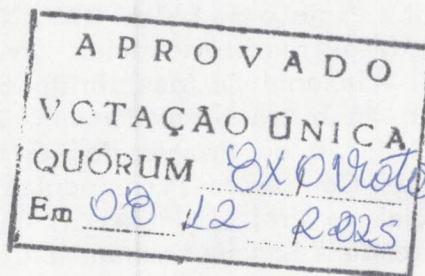 APROVADO
VOTAÇÃO ÚNICA
QUÓRUM 8X0 Voto
Em 08 12 2025